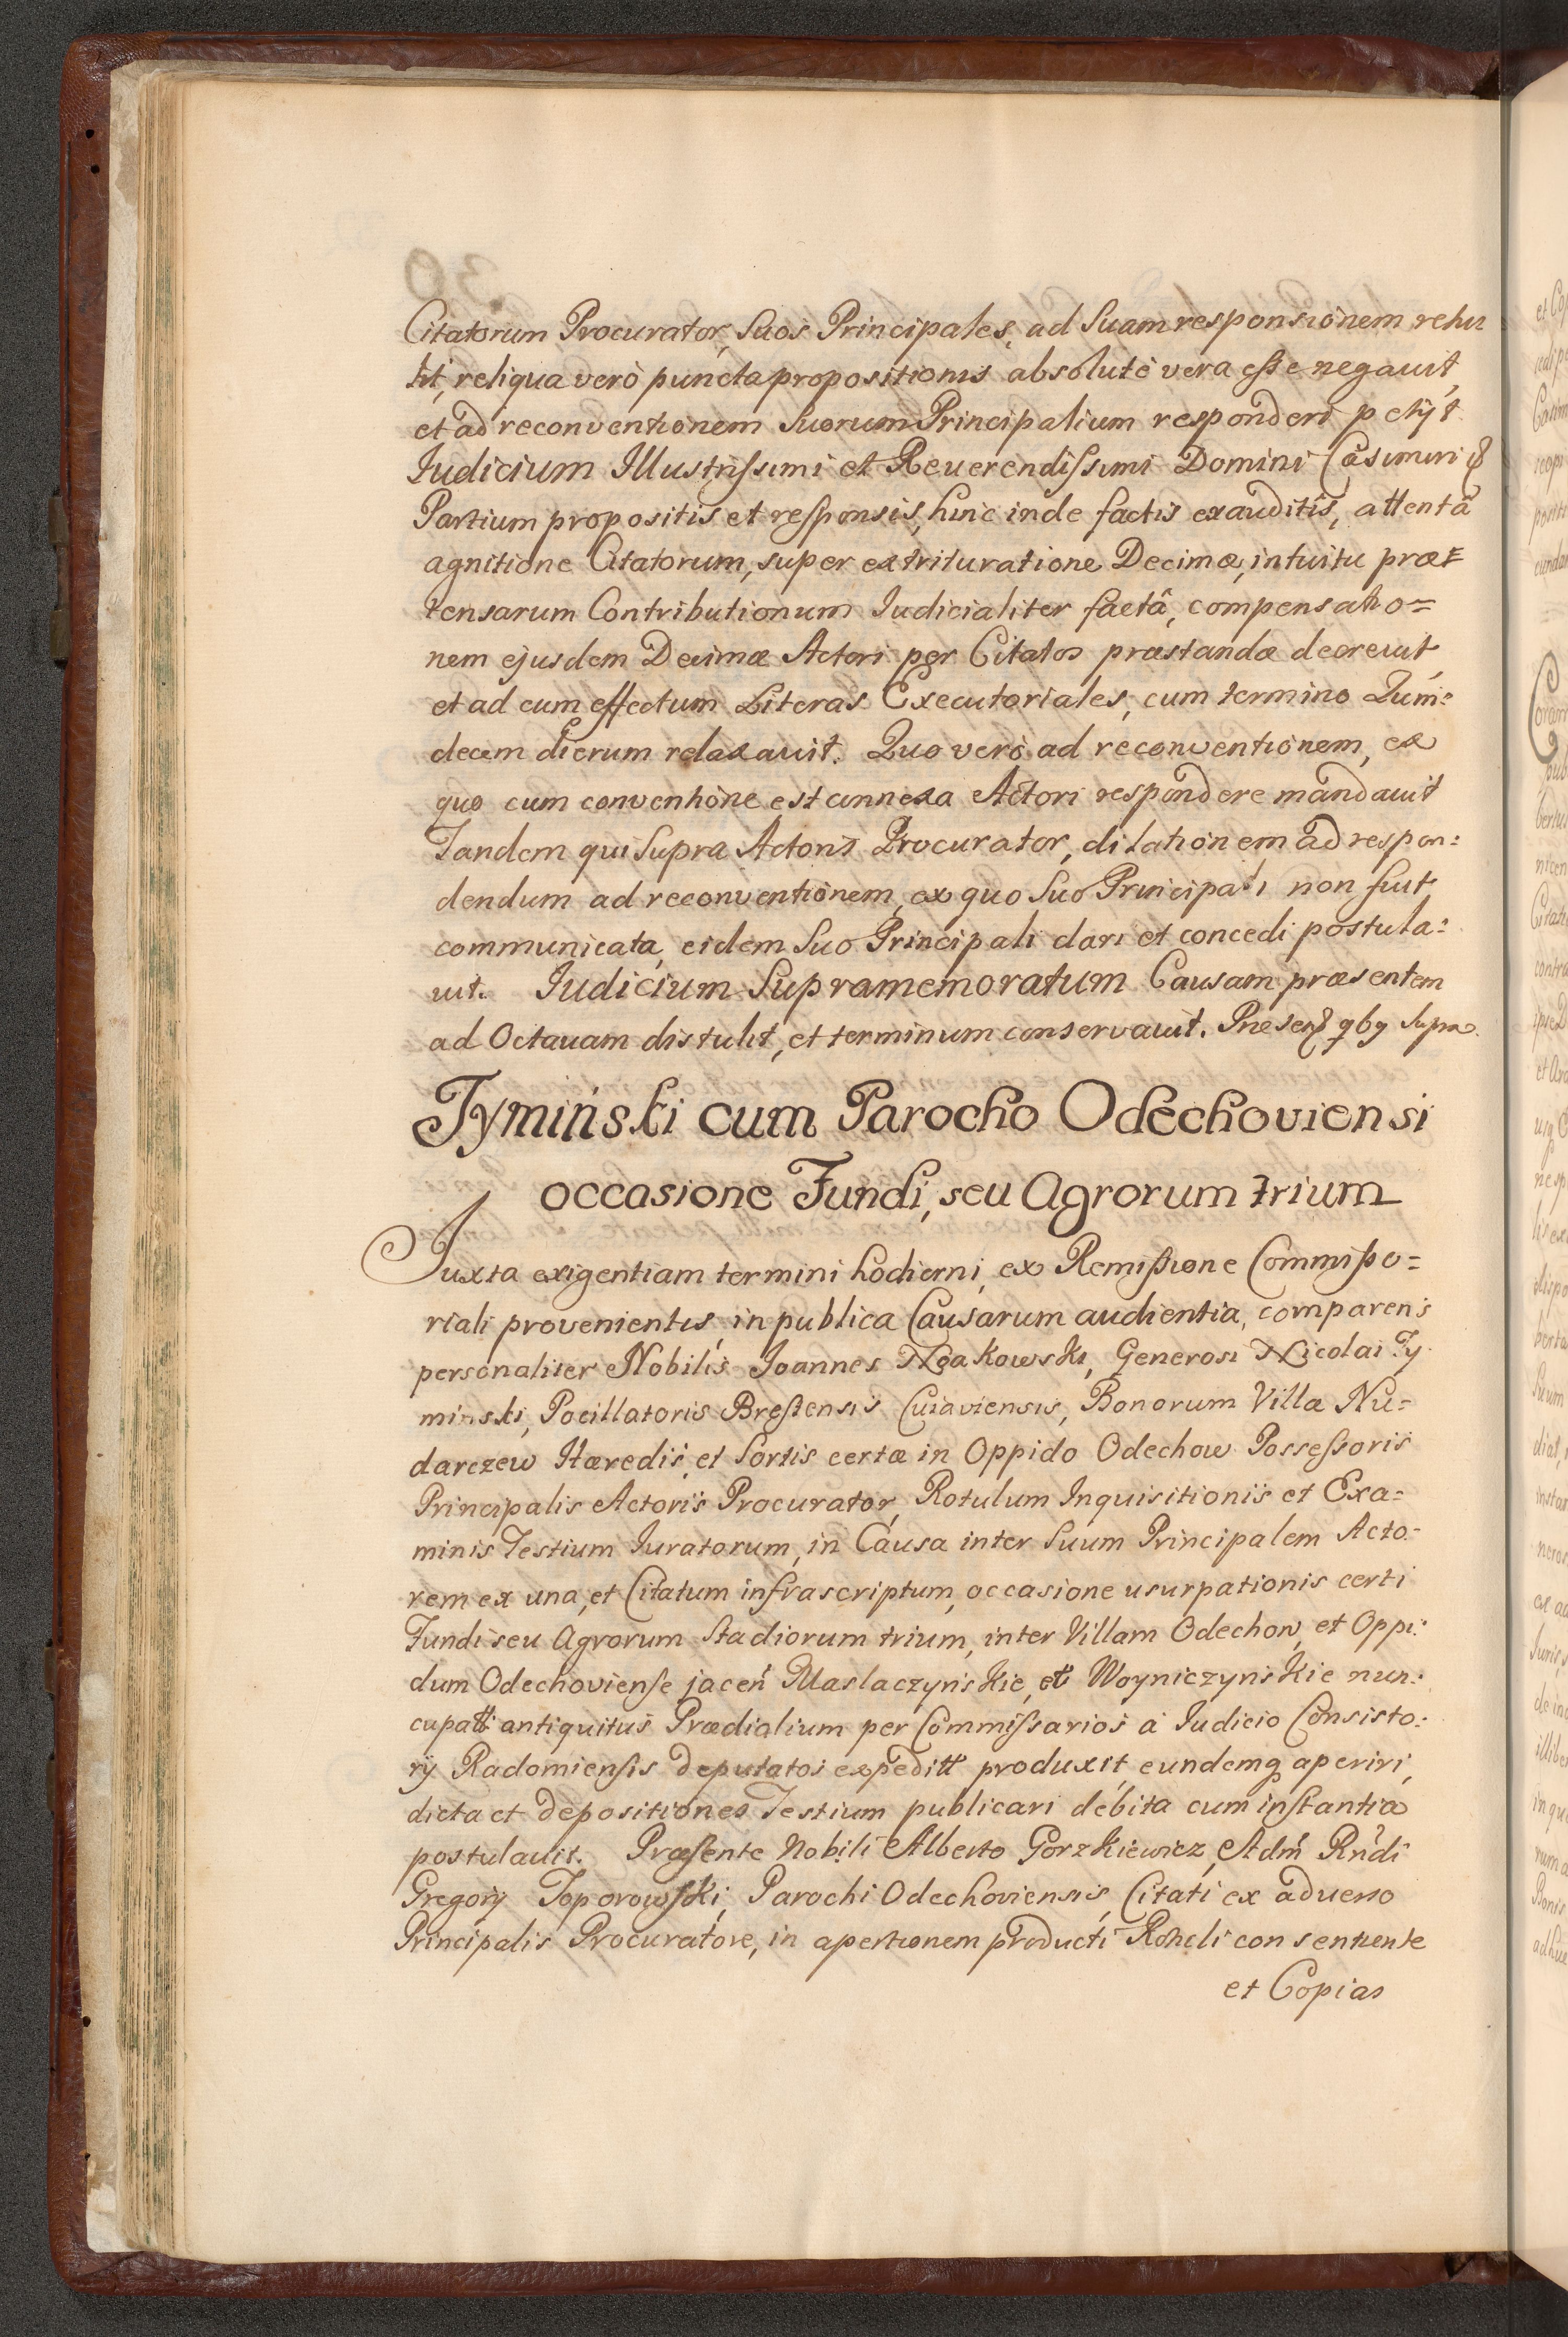 Citatorum Procurator, Suos Principales, ad Suam responsionem retu
lit, reliqua verò puncta propositionis absolutè vera esse negauit,
et ad reconventionem Suorum Principalium responderi petijt
Iudicium Illustrissimi et Reuerendissimi Domini Casimiri &
Partium propositis et responsis, hinc inde factis exauditis, attentâ
agnitione Citatorum, super extrituratione Decimæ, intuitu præ=
tensarum Contributionum Iudicialiter factâ, compensatio=
nem ejusdem Decimæ Actori per Citatos præstandæ decreuit,
et ad eum effectum Literas Executoriales, cum termino Quin=
decem dierum relaxauit. Quo verò ad reconventionem, ex
quo cum conventione est annexa Actori respondere mandauit
Tandem qui Supra Actoris Procurator, dilationem ad respon=
dendum ad reconventionem, ex quo Suo Principali non fuit
communicata, eidem Suo Principali dari et concedi postula=
uit. Iudicium Supramemoratum Causam præsentem
ad Octauam distulit, et terminum conservauit. Supra
Tyminski cum Parocho Odechoviensi
occasione Fundi, seu Agrorum trium
Juxta exigentiam termini hodierni, ex Remissione Commisso=
riali provenientis, in publica Causarum audientia, comparens
personaliter Nobilis Joannes Generosi Nicolai Ty
minski, Pocillatoris Brestensis Cuiaviensis, Bonorum Villæ Nu=
darczew Hæredis, et Sortis certæ in Oppido Odechow Possessoris
Principalis Actoris Procurator, Rotulum Inquisitionis et Exa=
minis Testium Iuratorum, in Causa inter Suum Principalem Acto=
rem ex una, et Citatum infrascriptum, occasione usurpationis certi
Fundi seu Agrorum Stadiorum trium, inter Villam Odechow, et Oppi=
dum Odechoviense jacen Maslaczynskie, et Woyniczynskie nun=
cupatt antiquitus Prædialium per Commissarios à Iudicio Consisto=
rij Radomiensis deputatos expeditt produxit, eundemq aperiri,
dicta et depositiones Testium publicari debita cum instantia
postulauit. Præsente Nobili Alberto Gorzkiewicz, Adm Rndi
Gregorij Toporowski, Parochi Odechoviensis, Citati ex aduerso
Principalis Procuratore, in apertionem producti Rotuli consentiente
et Copias